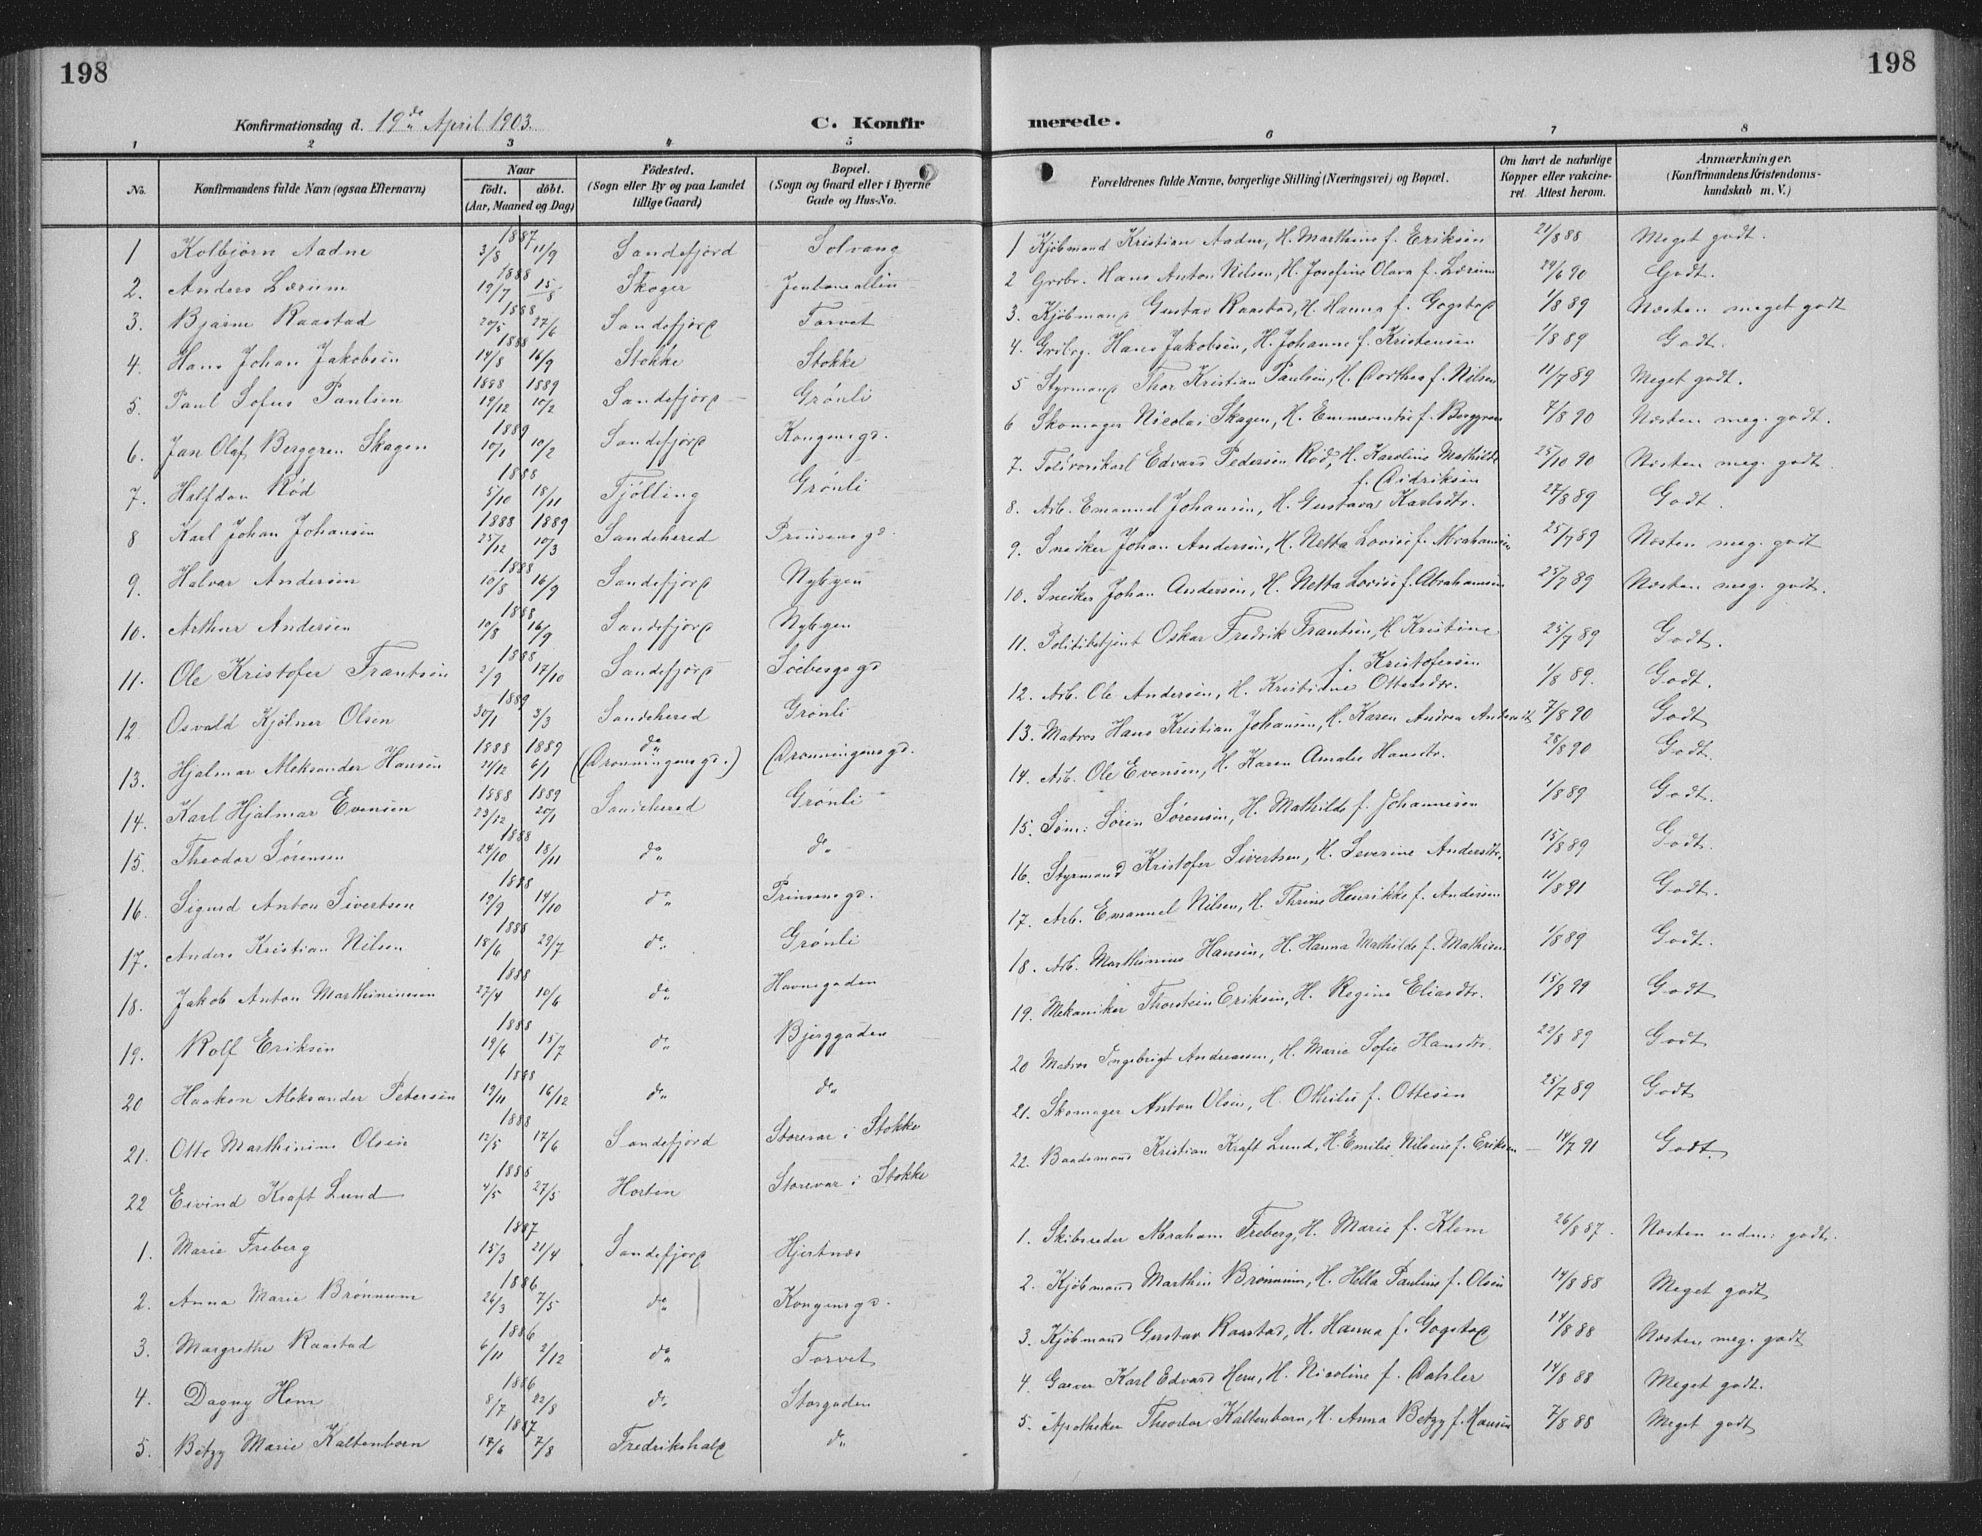 198
198
Konfirmationsdag d. 19de April 1903.
C. Konfirmerede.
1 2 3 4 5 6 7 8
No.
Konfirmandens fulde Navn (ogsaa Efternavn)
Naar
födt. döbt.
(Aar, Maaned og Dag)
Födested.
(Sogn eller By og paa Landet
tillige Gaard)
Bopæl.
(Sogn og Gaard eller i Byerne
Gade og Hus-No.
Forældrenes fulde Navne, borgerlige Stilling (Næringsvei) og Bopæl.
Om havt de naturlige
Kopper eller vakcine-
ret. Attest herom.
Anmærkninger.
(Konfirmandens Kristendoms-
kundskab m. V.)
1 Kolbjørn Aadne 1887 3/8 11/9 Sandefjord Solvang 1 Kjøbmand Kristian Aadne, H. Marthine f. Eriksen 21/8 88 Meget godt.
2. Anders Lærum 1888 19/7 15/8 Skoger 2 Grbr. Hans Anton Nilsen, H. Josefine Olava f. Lærum 29/6 90 Godt.
3. Bjarne Raastad 1888 20/5 27/6 Sandefjord Torvet 3. Kjøbmand Gustav Raastad, H. Hanna f. Gogstad 1/8 89 Næsten meget godt
4. Hans Johan Jakobsen 1888 14/8 16/9 Stokke Stokke 4. Hans Jakobsen, H. Johanne f. Kristensen 1/8 89 Godt.
5. Paul Sofus Paulsen 1888 19/12 1889 10/2 Sandefjord Grønli 5 Styrmand Thor Kristian Paulsen, H. Dorthea f. Nilsen 11/7 89 Meget godt.
6. Jan Olaf Berggren Skagen 1889 10/1 10/2 Sandefjord Kongensgd. 6 Skomager Nicolai Skagen, H. Emmerentse f. Berggren 7/8 90 Næsten meg. godt.
7. Halfdan Rød 1888 5/10 18/11 Tjølling Grønli 7. Edvard Pedersen Rød, H. Karoline Mathilde
f. Didriksen 25/10 90 Næsten meg. godt.
8 Karl Johan Johansen 1888 25/12 1889 10/3 Sandeherred Prinsensgd. 8. Arb. Emanuel Johansen, H. Gustava Karlsdtr. 27/8 89 Godt.
9. Halvar Andersen 1888 10/8 16/9 Sandefjord Nybyen 9. Snedker Johan Andersen, H. Netta Lovise f. Abrahamsen 25/7 89 Næsten meg. godt
10. Arthur Andersen 1888 10/8 16/9 Sandefjord Nybyen 10. Snedker Johan Andersen, H. Netta Lovise f. Abrahamsen 25/7 89 Næsten meg. godt.
11. Ole Kristofer Frantsen 1888 2/9 17/10 Sandefjord Søebergsgd 11. Politibetjent Oskar Fredrik Frantsen, H. Kristine
f. Kristofersen 25/7 89 Godt.
12 Osvald Kjølner Olsen 1889 30/1 3/3 Sandeherred Grønli 12. Arb. Ole Andersen, H. Kristiane Ottersdtr. 1/8 89. Godt.
13. Hjalmar Aleksander Hansen 1888 21/12 1889 6/1 do (Dronningensgd.) (Dronningensgd. 13. Matros Hans Kristian Johansen, H. Karen Andrea Andersdt 7/8 90 Godt
14. Karl Hjalmar Evensen 1888 23/12 1889 20/1 Sandeherred Grønli 14. Arb. Ole Evensen, H. Karen Amalie Hansdtr. 28/8 90 Godt.
15. Theodor Sørensen 1888 24/10 18/11 do do 15. Søm: Søren Sørensen, H. Mathilde f. Johannesen 1/8 89 Godt.
16. Sigurd Anton Sivertsen 1888 19/9 14/10 do Prinsensgd. 16. Styrmand Kristofer Sivertsen, H. Severine Andersdtr. 15/8 89 Godt.
17. Anders Kristian Nilsen 1888 18/6 29/7 do Grønli 17. Arb. Emanuel Nilsen, H. Thrine Henrikke f. Andersen 11/8 91 Godt.
18. Jakob Anton Marthiniusen 1888 27/4 10/6 do Havnegaden 18. Arb. Marthinius Hansen, H. Hanna Mathilde f. Mathisen 1/8 89 Godt.
19. Rolf Eriksen 1888 19/6 15/7 do Bjerggaden 19. Mekaniker Thorstein Eriksen, H. Regine Eliasdtr. 15/8 99 Godt
20 Haakon Aleksander Petersen 1888 19/11 16/12 do do 20 Matros Ingebrigt Andreassen, H. Marie Sofie Hansdtr. 22/8 89 Godt
21. Otto Marthinius Olsen 1888 12/5 17/6 Sandefjord Storevar i Stokke 21. Skomager Anton Olsen, H. Othilie f. Ottesen 25/7 89 Godt
22 Eivind Kraft Lund 1888 4/5 27/5 Horten Storevar i Stokke 22. Baadsmand Kristian Kraft Lund, H. Emilie Nilsine f. Eriksen 14/7 91 Godt.
1. Marie Freberg 1887 15/3 21/4 Sandefjord Hjertnæs 1. Skibsreder Abraham Freberg, H. Marie f. Klem 26/8 87. Næsten udm: godt.
2. Anna Marie Brønnum 1886 26/3 7/5 do Kongensgd. 2. Kjøbmand Marthin Brønnum, H. Hella Pauline f. Olsen 14/8 88 Meget godt
3. Margrethe Raastad 1886 6/11 2/12 do Torvet 3. Kjøbmand Gustav Raastad, H. Hanna f. Gogstad 14/8 88 Næsten meg. godt
4. Dagny Hem 1886 8/7 22/8 do Storgaden 4. Garver Karl Edvard Hem, H. Nicoline f. Dahler 14/8 88 Meget godt.
5. Betzy Marie Kaltenborn 1887 17/6 7/8 Fredrikshald do 5. Apotheker Theodor Kaltenborn, H. Anna Betzy f. Hansen 7/8 88 Meget godt